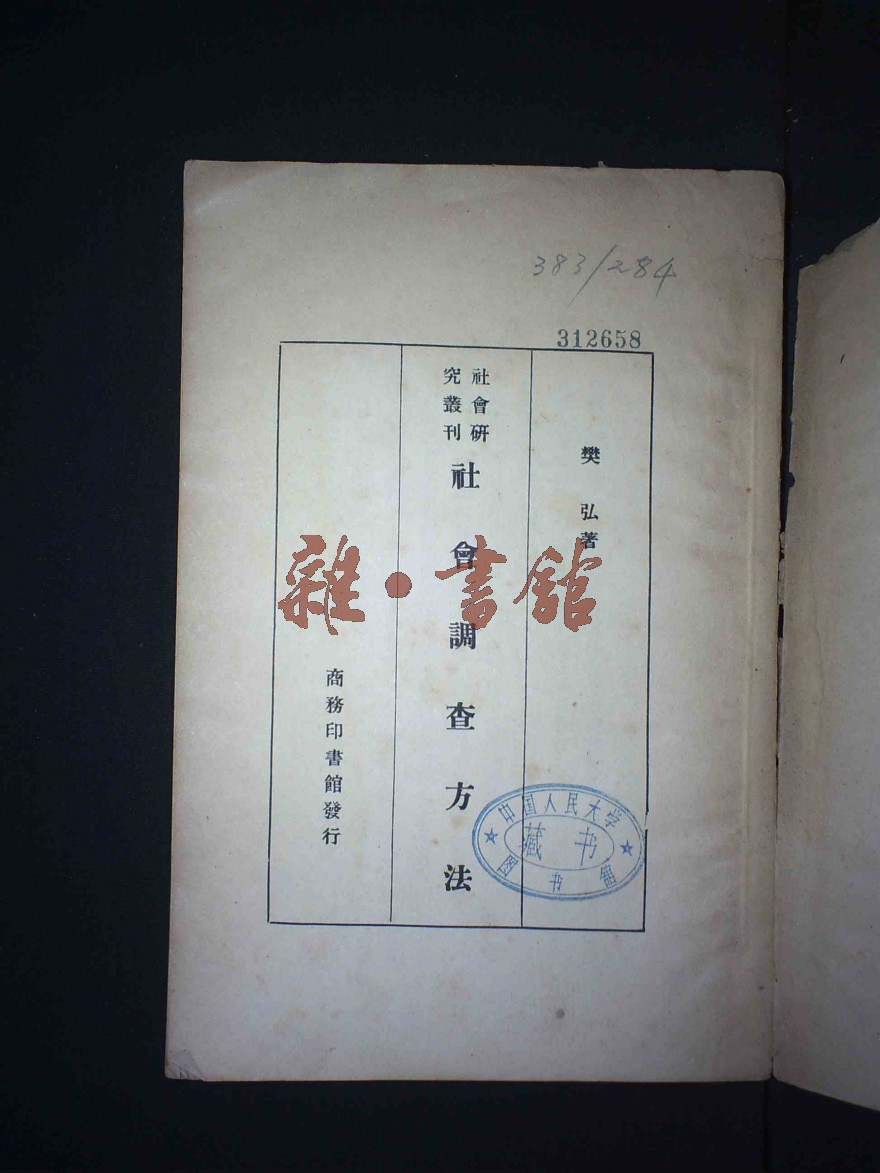 383/284
312658
樊弘著
社會研
究叢刊
社會調查方法
商務印書館發行
雜·書館
中国人民大学
藏书
图书馆